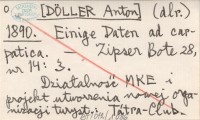 [DÖLLER Anton] (dlr.)
1890. Einige Daten ad car-
patica. —, Zipser Bote 28,
nr 14: 3.
Działalność MKE i
projekt utworzenia nowej orga-
nizacji turyst. Tátra-Club.